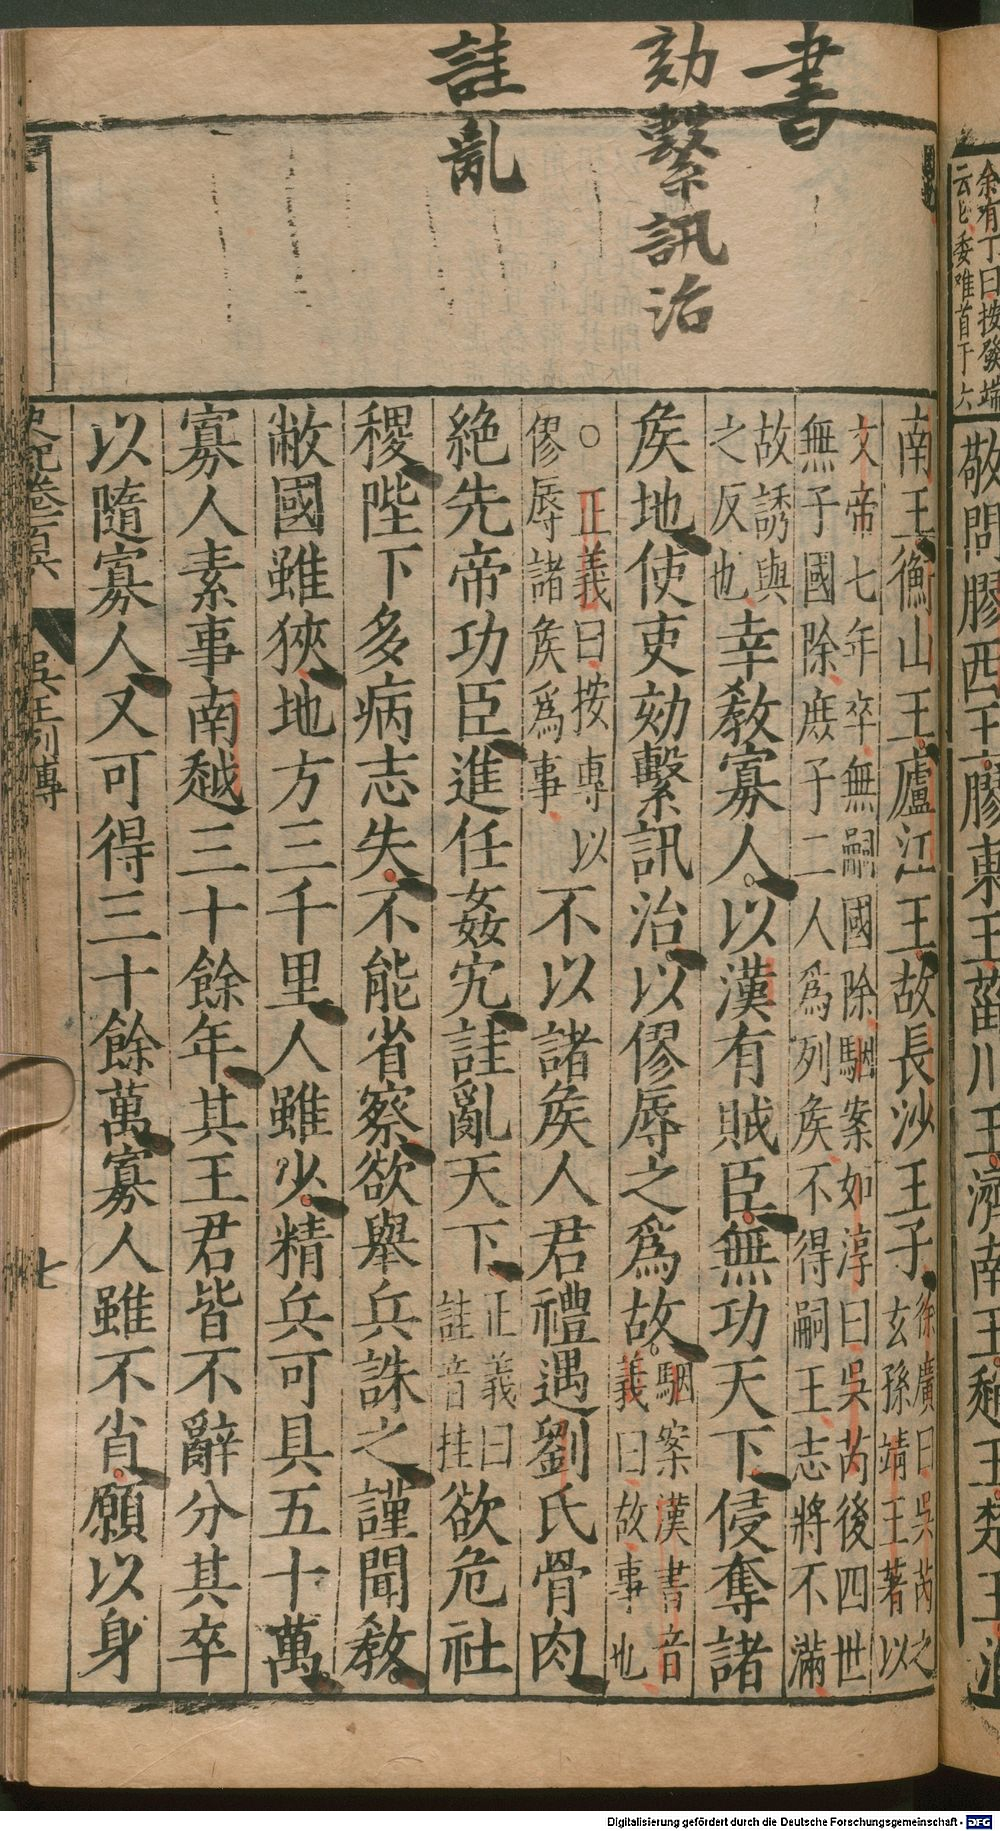 書
劾繫訊治
詿亂
余有丁曰按發端
敬問膠西王膠東王菑川王濟南王趙王楚王淮
南王衡山王廬江王故長沙王子徐廣曰吳芮之玄孫靖王著以
文帝七年卒無嗣國除駰案如淳曰吳芮後四世
無子國除庶子二人爲列矦不得嗣王志將不滿
故誘與之反也幸敎寡人以漢有賊臣無功天下侵奪諸
矦地使吏劾繫訊治以僇辱之爲故駰案漢書音義曰故事也
○正義曰按專以僇辱諸矦爲事不以諸矦人君禮遇劉氏骨肉
絶先帝功臣進任姦宄詿亂天下正義曰詿音挂欲危社
稷陛下多病志失不能省察欲舉兵誅之謹聞敎
敝國雖狹地方三千里人雖少精兵可具五十萬
寡人素事南越三十餘年其王君皆不辭分其卒
以隨寡人又可得三十餘萬寡人雖不肖願以身
史記卷一百六 吳王列傳 七
Digitalisierung gefördert durch die Deutsche Forschungsgemeinschaft - DFG